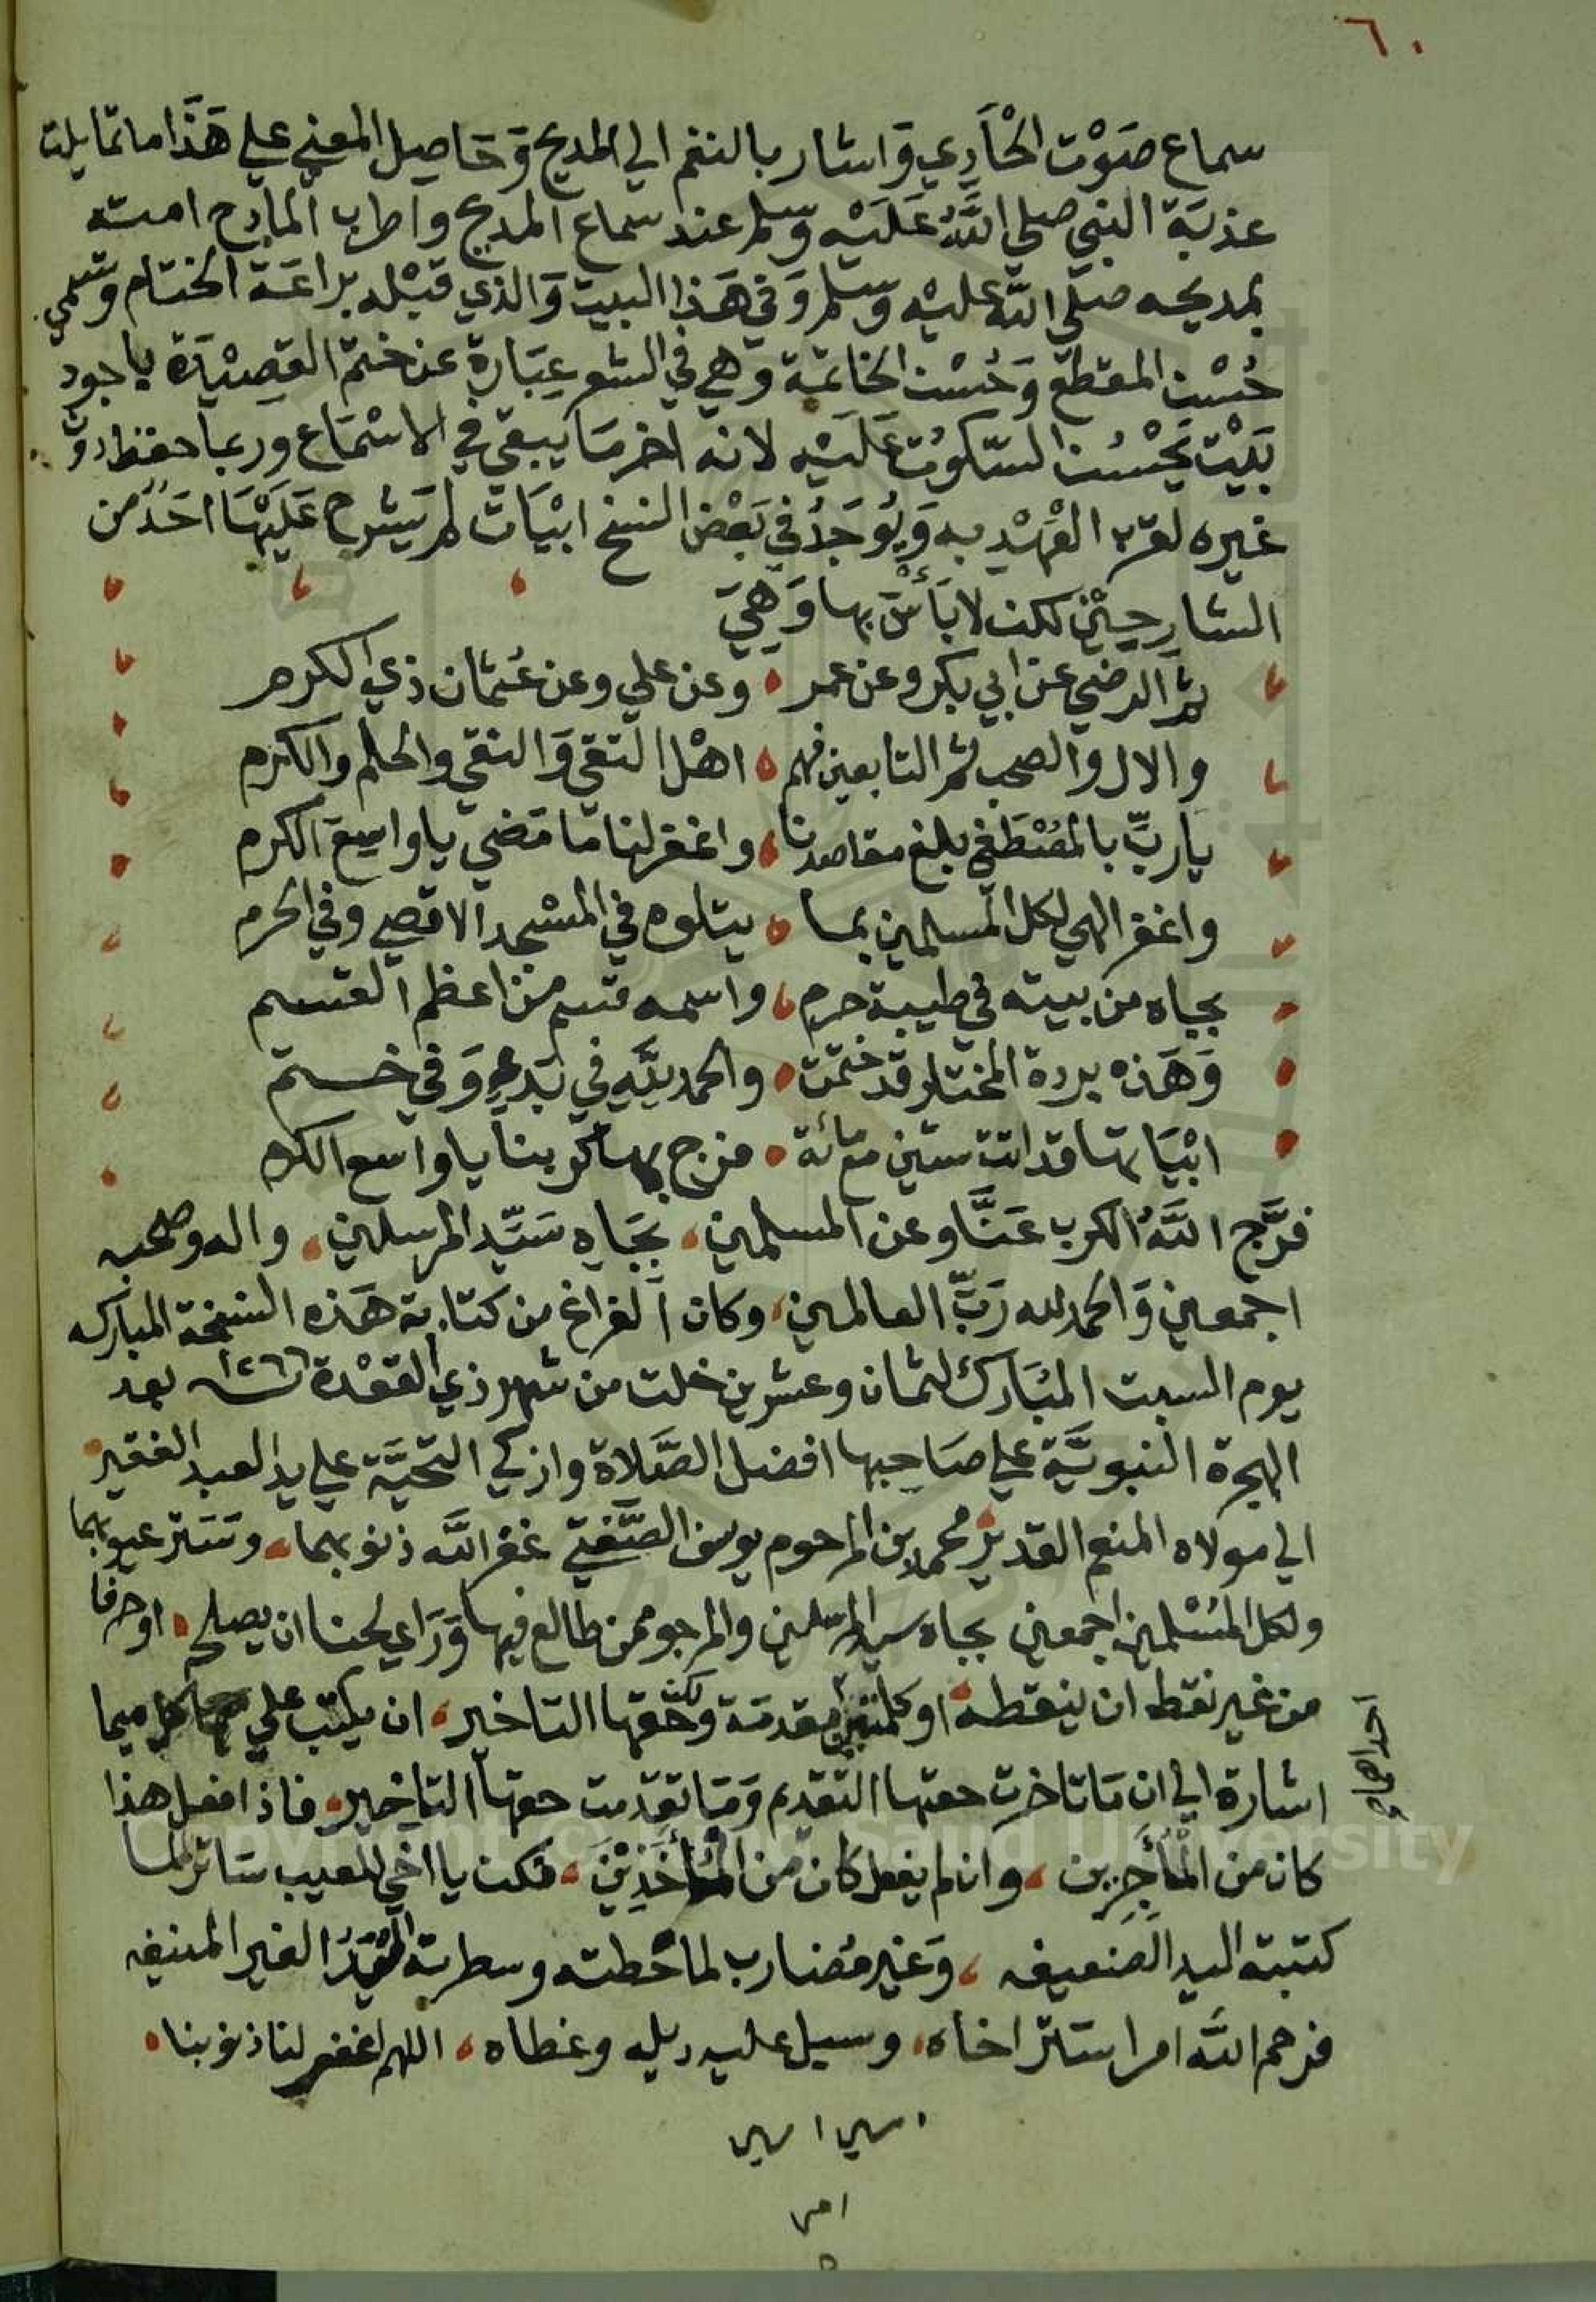 ٦٠
سماع صَوْت الْحَادِي وَاشار بالنغم الي المديح وَحَاصِل المعني علي هَذَا ما تمايلت
عذبَة النبي صلي اللَّهُ عَلَيْه وسلم عند سماع المديح واطرب المادح امته
بمديحه صلي اللَّه عليْه وسلم وَفي هَذا البيت وَالذي قبْله براعَة الختام وتسمي
حُسْن المقطع وَحُسْن الخاتمَة وَهي في الشعر عِبَارة عن ختم القصِيْدَة باجود
بَيْت يَحْسُن السّكُوت عَلَيْه لانه اخر مَا يبقي في الاسْمَاع وربما حفظ دوْن
غيره لقرب العَهْدِ به وَيُوجَدُ في بَعْض النسخ ابْيَات لم يَشرح عَلَيْهَا احَدٌ من
الشارحِيْن لكن لا بَأسَ بها وَهِيَ
ثم الرضي عن ابي بكر وعن عمر وعن علي وعن عُثمان ذي الكرم
والال والصحب ثم التابعين فهم اهْل التقي وَالنقي والحلم والكرم
يَاربِّ بالمُصْطَفي بلغ مقاصدنا واغفر لنا مَا مَضي يا واسِع الكرم
واغفر الهي لكل المسلمين بما يتلوه في المسْجد الاقصي وفي الحرم
بجاه من بيته في طيبة حرم واسمه قسم من اعظم القسم
وَهَذه بردة المختار قد ختمَت والحمد للَّهِ في بَدءٍ وَفي ختم
ابْيَاتها قد اتت ستين مع مائة فرج بها كربنا يا واسع الكرم
فرَّج اللَّهُ الكرب عَنَّا وعن المسلمين بجَاهِ سَيّد المرسلين واله وصحبه
اجمعين وَالحمد لله رَبِّ العالمين وكان الفراغ من كتابة هَذه النسخة المباركه
يوم السبت المبَارك لثمان وعشرين خلت من شهر ذي القعْدة سنة ١٢٦٦ بعد
الهجرة النبويَّة علي صَاحِبها افضل الصَّلاة وازكي التحيَّة علي يد العبد الفقير
الي مولاه المنعم القدير محمد بن المرحوم يوسف الصَّفتي غفر اللَّه ذنوبهما وَسَتر عيوبهما
ولكل المُسْلمين اجمعين بجاه سيد المرسلين والمرجو ممن طالع فيها وَرَاي لحنا ان يصلح او حرفا
من غير نقط ان ينقطه او كلمتين مقدمَة وحقها التاخير ان يكتب علي كل ميما
احداهما
اشارة الي ان مَا تاخرت حقها التقديم وَمَا تقدمت حقها التاخير فاذا فعل هذا
كان من المأجَرِين وان لم يفعل كان من المؤاخَذِيْنَ فكن يا اخي للعيب سَاتر لما
كتبته اليد الضَعيفه وَغير مُضارب لما خطته وسطرته الغير المنيفه
فرحم اللَّه امرا ستر اخاه وسبل عليه ذيله وغطاه اللهم اغفر لنا ذنوبنا
امين امين
امين